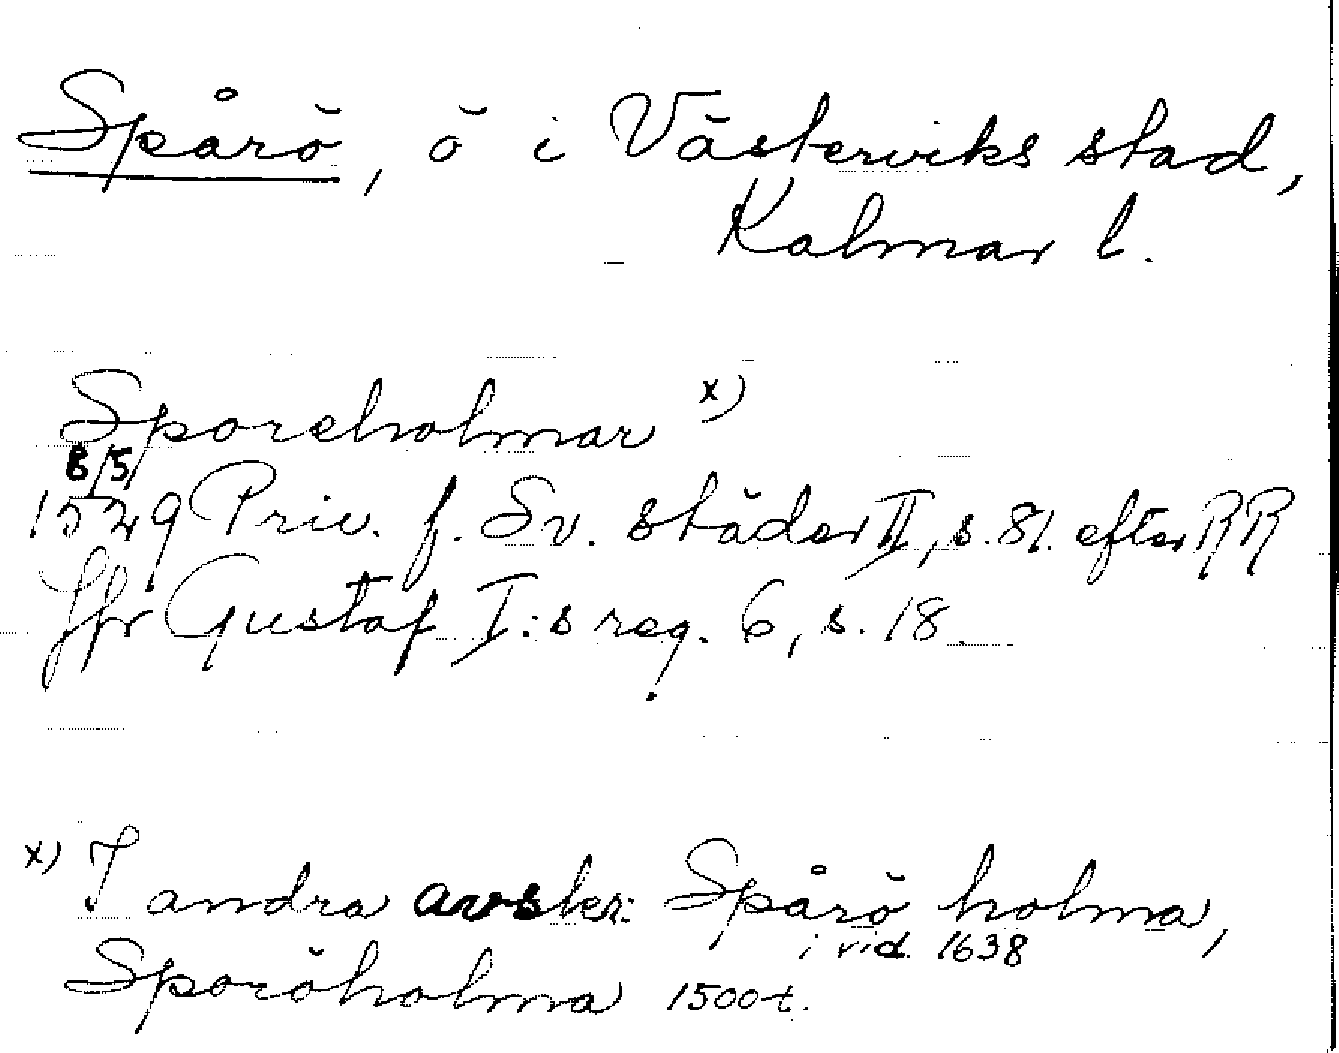 Spårö, ö i Västerviks stad,
Kalmar l.
Sporeholmar x)
8/5
1529 Priv. f. Sv. städer II, s. 81. efter RR
Jfr Gustaf I:s reg. 6, s. 18
x) I andra avskr: Spårö holma,
i vid. 1638
Sporöholma 1500-t.